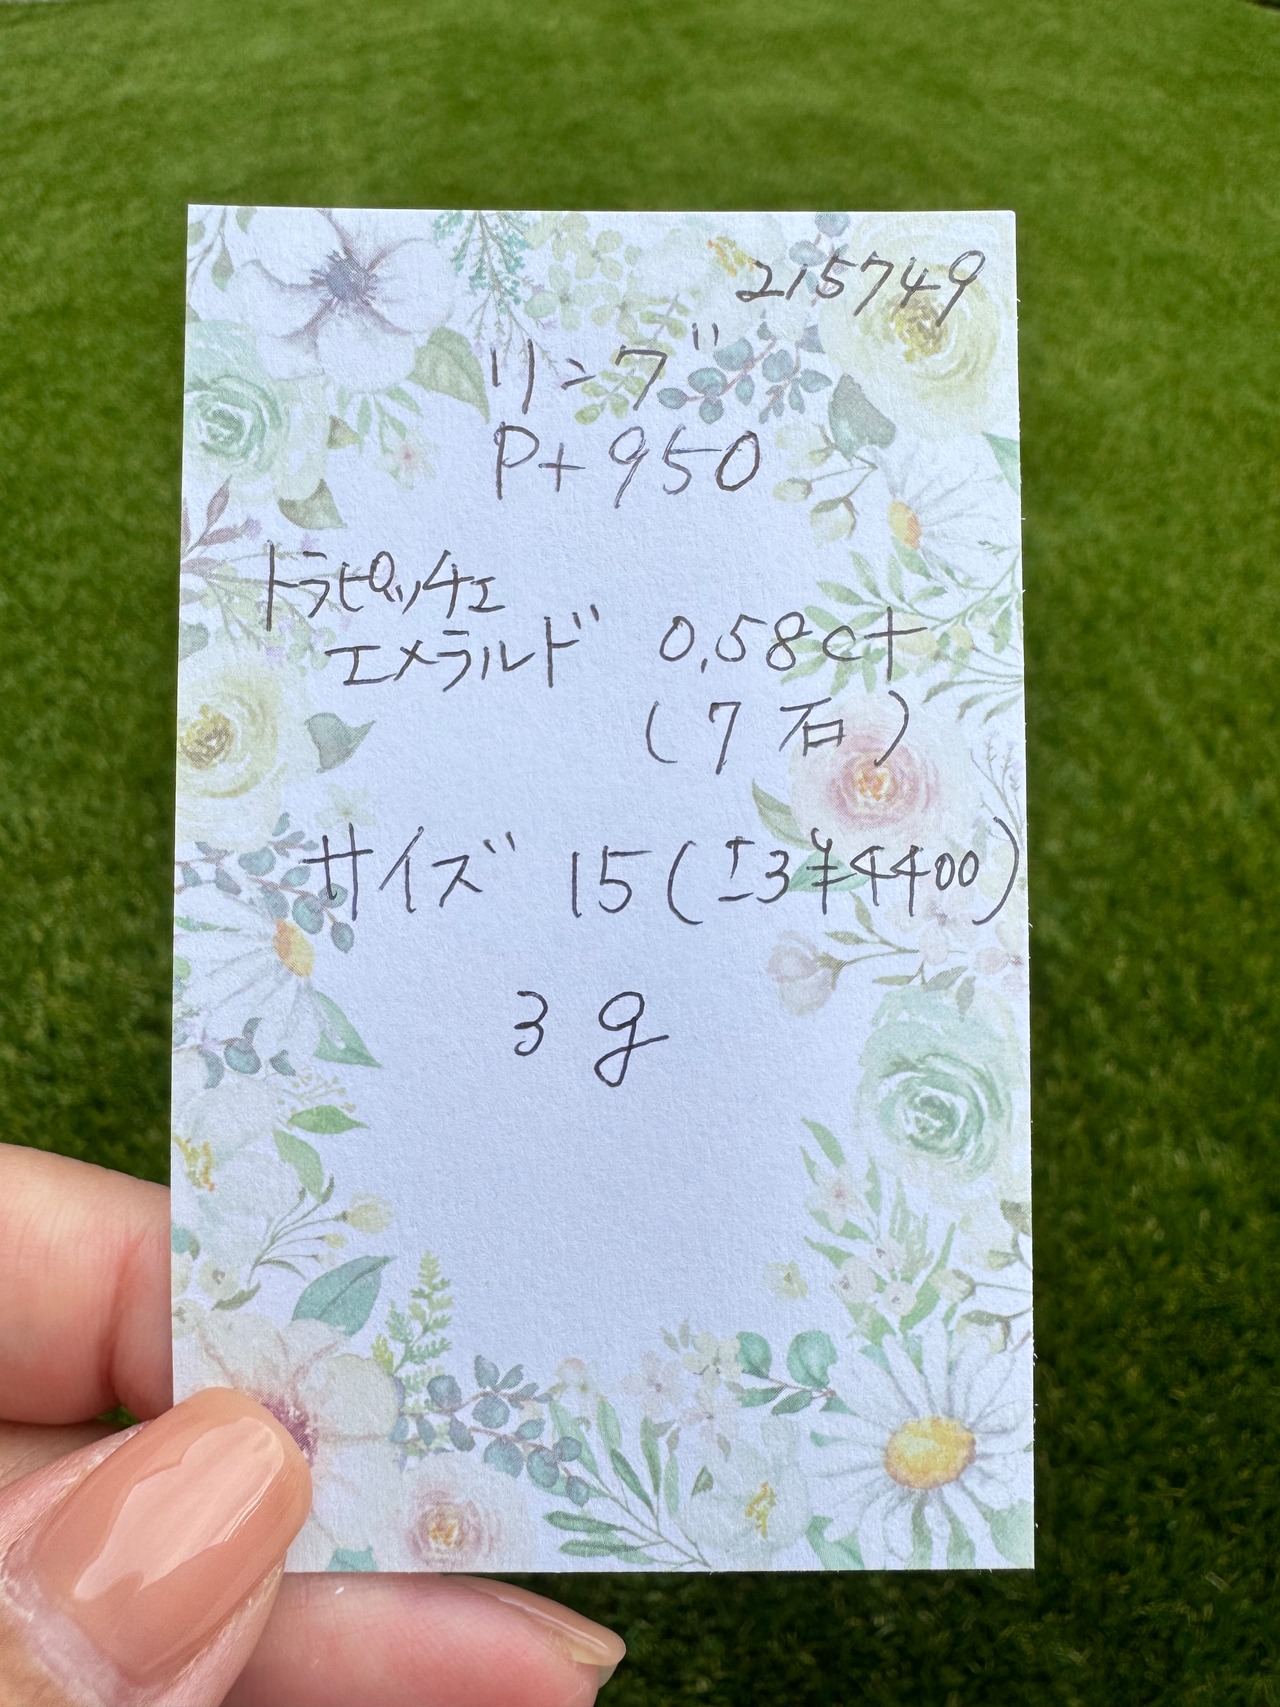 215749
リング
Pt 950
トラピッチェ
エメラルド 0.58ct
(7石)
サイズ 15(±3 ¥4400)
3g